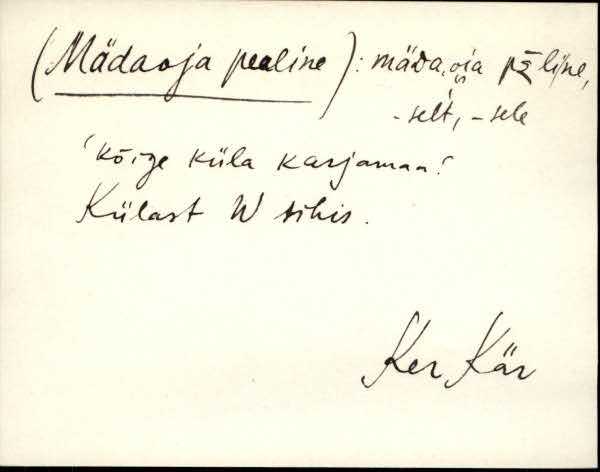 (Mädaoja pealine): mäᴅa, oja pǟline,
-selt, -sele
'kõige küla karjamaa'.
Külast W sihis.
Ker Kär